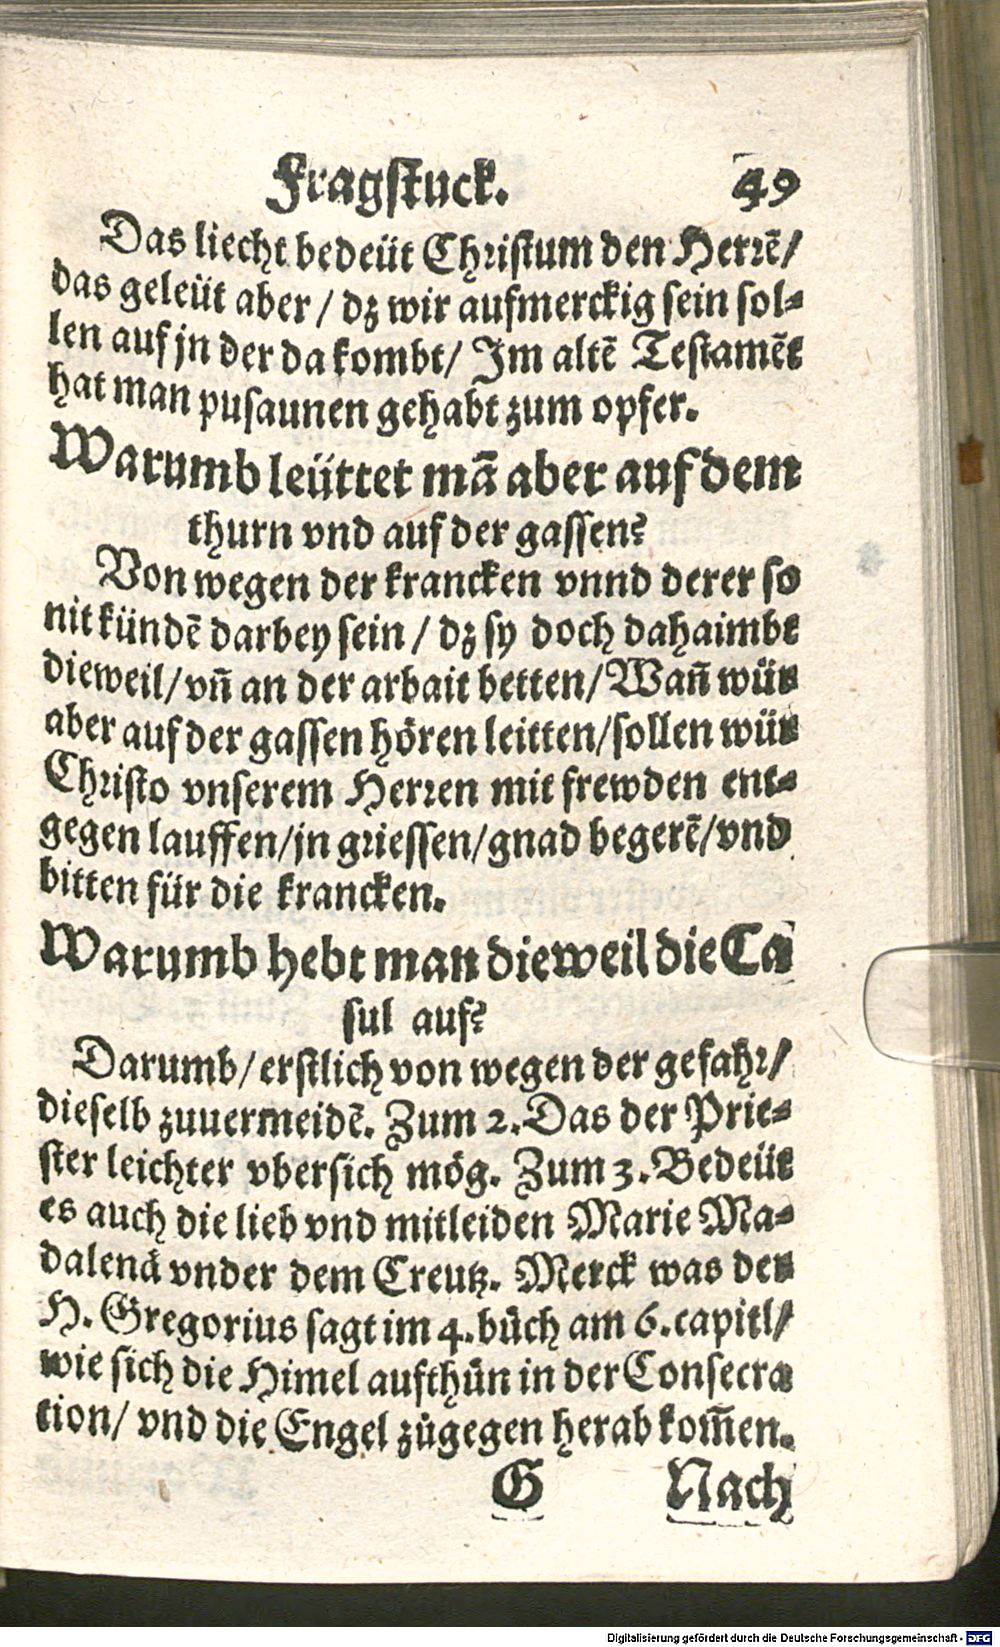 Fragstuck. 49
Das liecht bedeüt Christum den Herrẽ/
das geleüt aber / dz wir aufmerckig sein sol-
len auf jn der da kombt/ Im altẽ Testamẽt
hat man pusaunen gehabt zum opfer.
Warumb leüttet mã aber auf dem
thurn vnd auf der gassen?
Von wegen der krancken vnnd derer so
nit kündẽ darbey sein / dz sy doch dahaimbt
dieweil/ vñ an der arbait betten/ Wañ wür
aber auf der gassen hören leitten/sollen wür
Christo vnserem Herren mit frewden ent-
gegen lauffen/jn griessen/gnad begerẽ/vnd
bitten für die krancken.
Warumb hebt man dieweil die Ca
sul auf?
Darumb/ erstlich von wegen der gefahr/
dieselb zuuermeidẽ. Zum 2. Das der Prie-
ster leichter vbersich mög. Zum 3. Bedeüt
es auch die lieb vnd mitleiden Marie Ma-
dalenä vnder dem Creutz. Merck was der
H. Gregorius sagt im 4. bůch am 6. capitl/
wie sich die Himel aufthůn in der Consecra
tion/ vnd die Engel zůgegen herab kom̃en.
G Nach
Digitalisierung gefördert durch die Deutsche Forschungsgemeinschaft - DFG